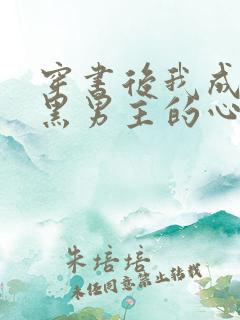 穿书后我成
黑男主的心
朱培培
未经同意禁止转载